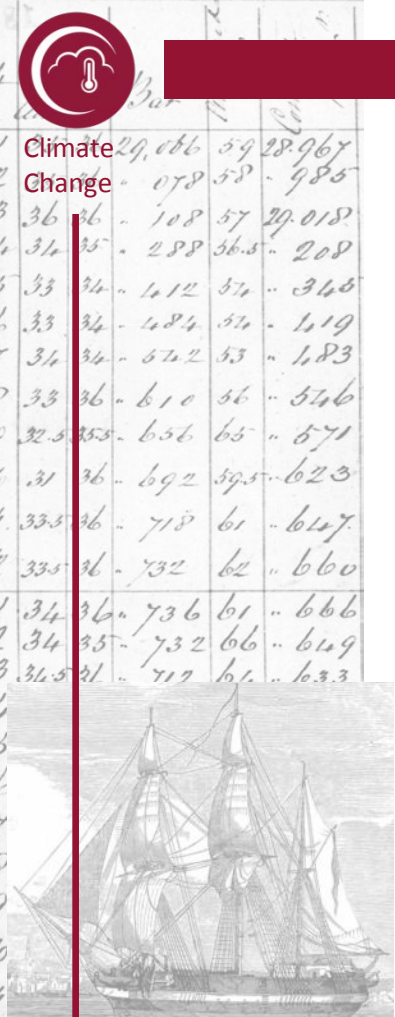 Bar
Climate
Change
29,066 59 28.967
" 078 58 " 985
36 36 " 108 57 29.018
34 35 " 288 56.5 " 208
33 34 " 412 54 " 345
33 34 " 484 54 " 419
34 34 " 542 53 " 483
33 36 " 610 56 " 546
32.5 35.5 " 656 65 " 571
31 36 " 692 59.5 " 623
33.5 36 " 718 61 " 647
33.5 36 " 732 62 " 660
34 36 " 736 61 " 666
34 35 " 732 66 " 649
34.5 " 712 64 " 633